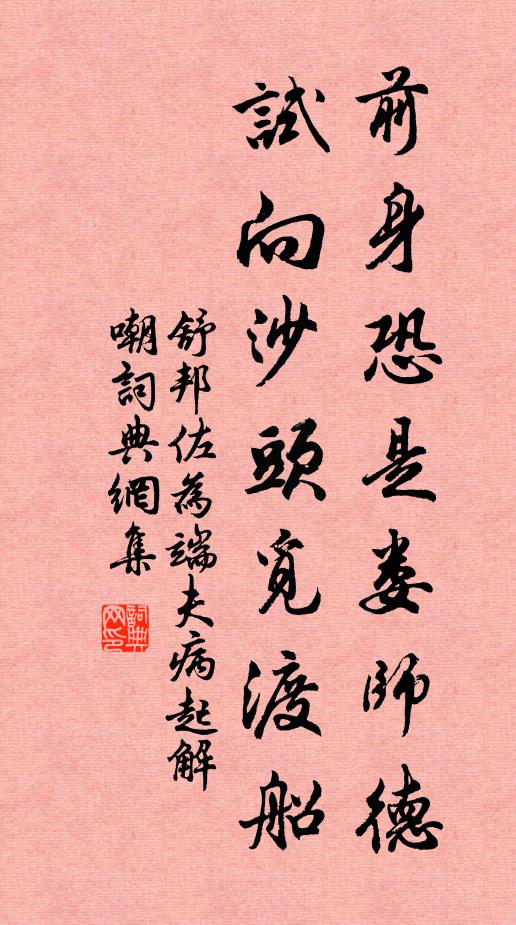 前身恐是娄師德
試向沙頭覓渡船
舒邦佐為端夫病起解
嘲詞典網集
詞典网印